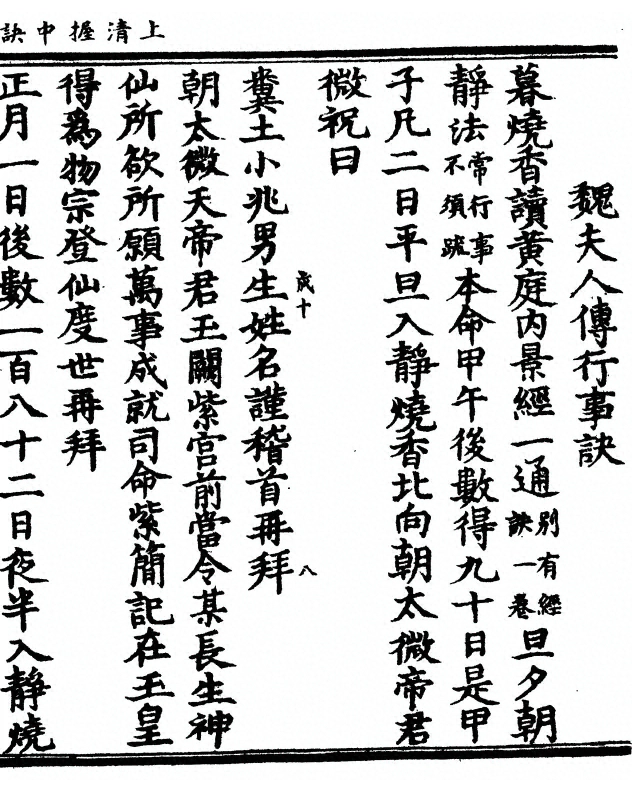 上清握中訣
魏夫人傳行事訣
暮燒香讀黃庭內景經一通別有經訣一卷旦夕朝
靜法常行事不須疏本命甲午後數得九十日是甲
子凡二日平旦入靜燒香北向朝太微帝君
微祝曰
糞土小兆男生姓名謹稽首再拜
歲十
八
朝太微天帝君玉闕紫宮前當令某長生神
仙所欲所願萬事成就司命紫簡記在玉皇
得為物宗登仙度世再拜
正月一日後數一百八十二日夜半入靜燒